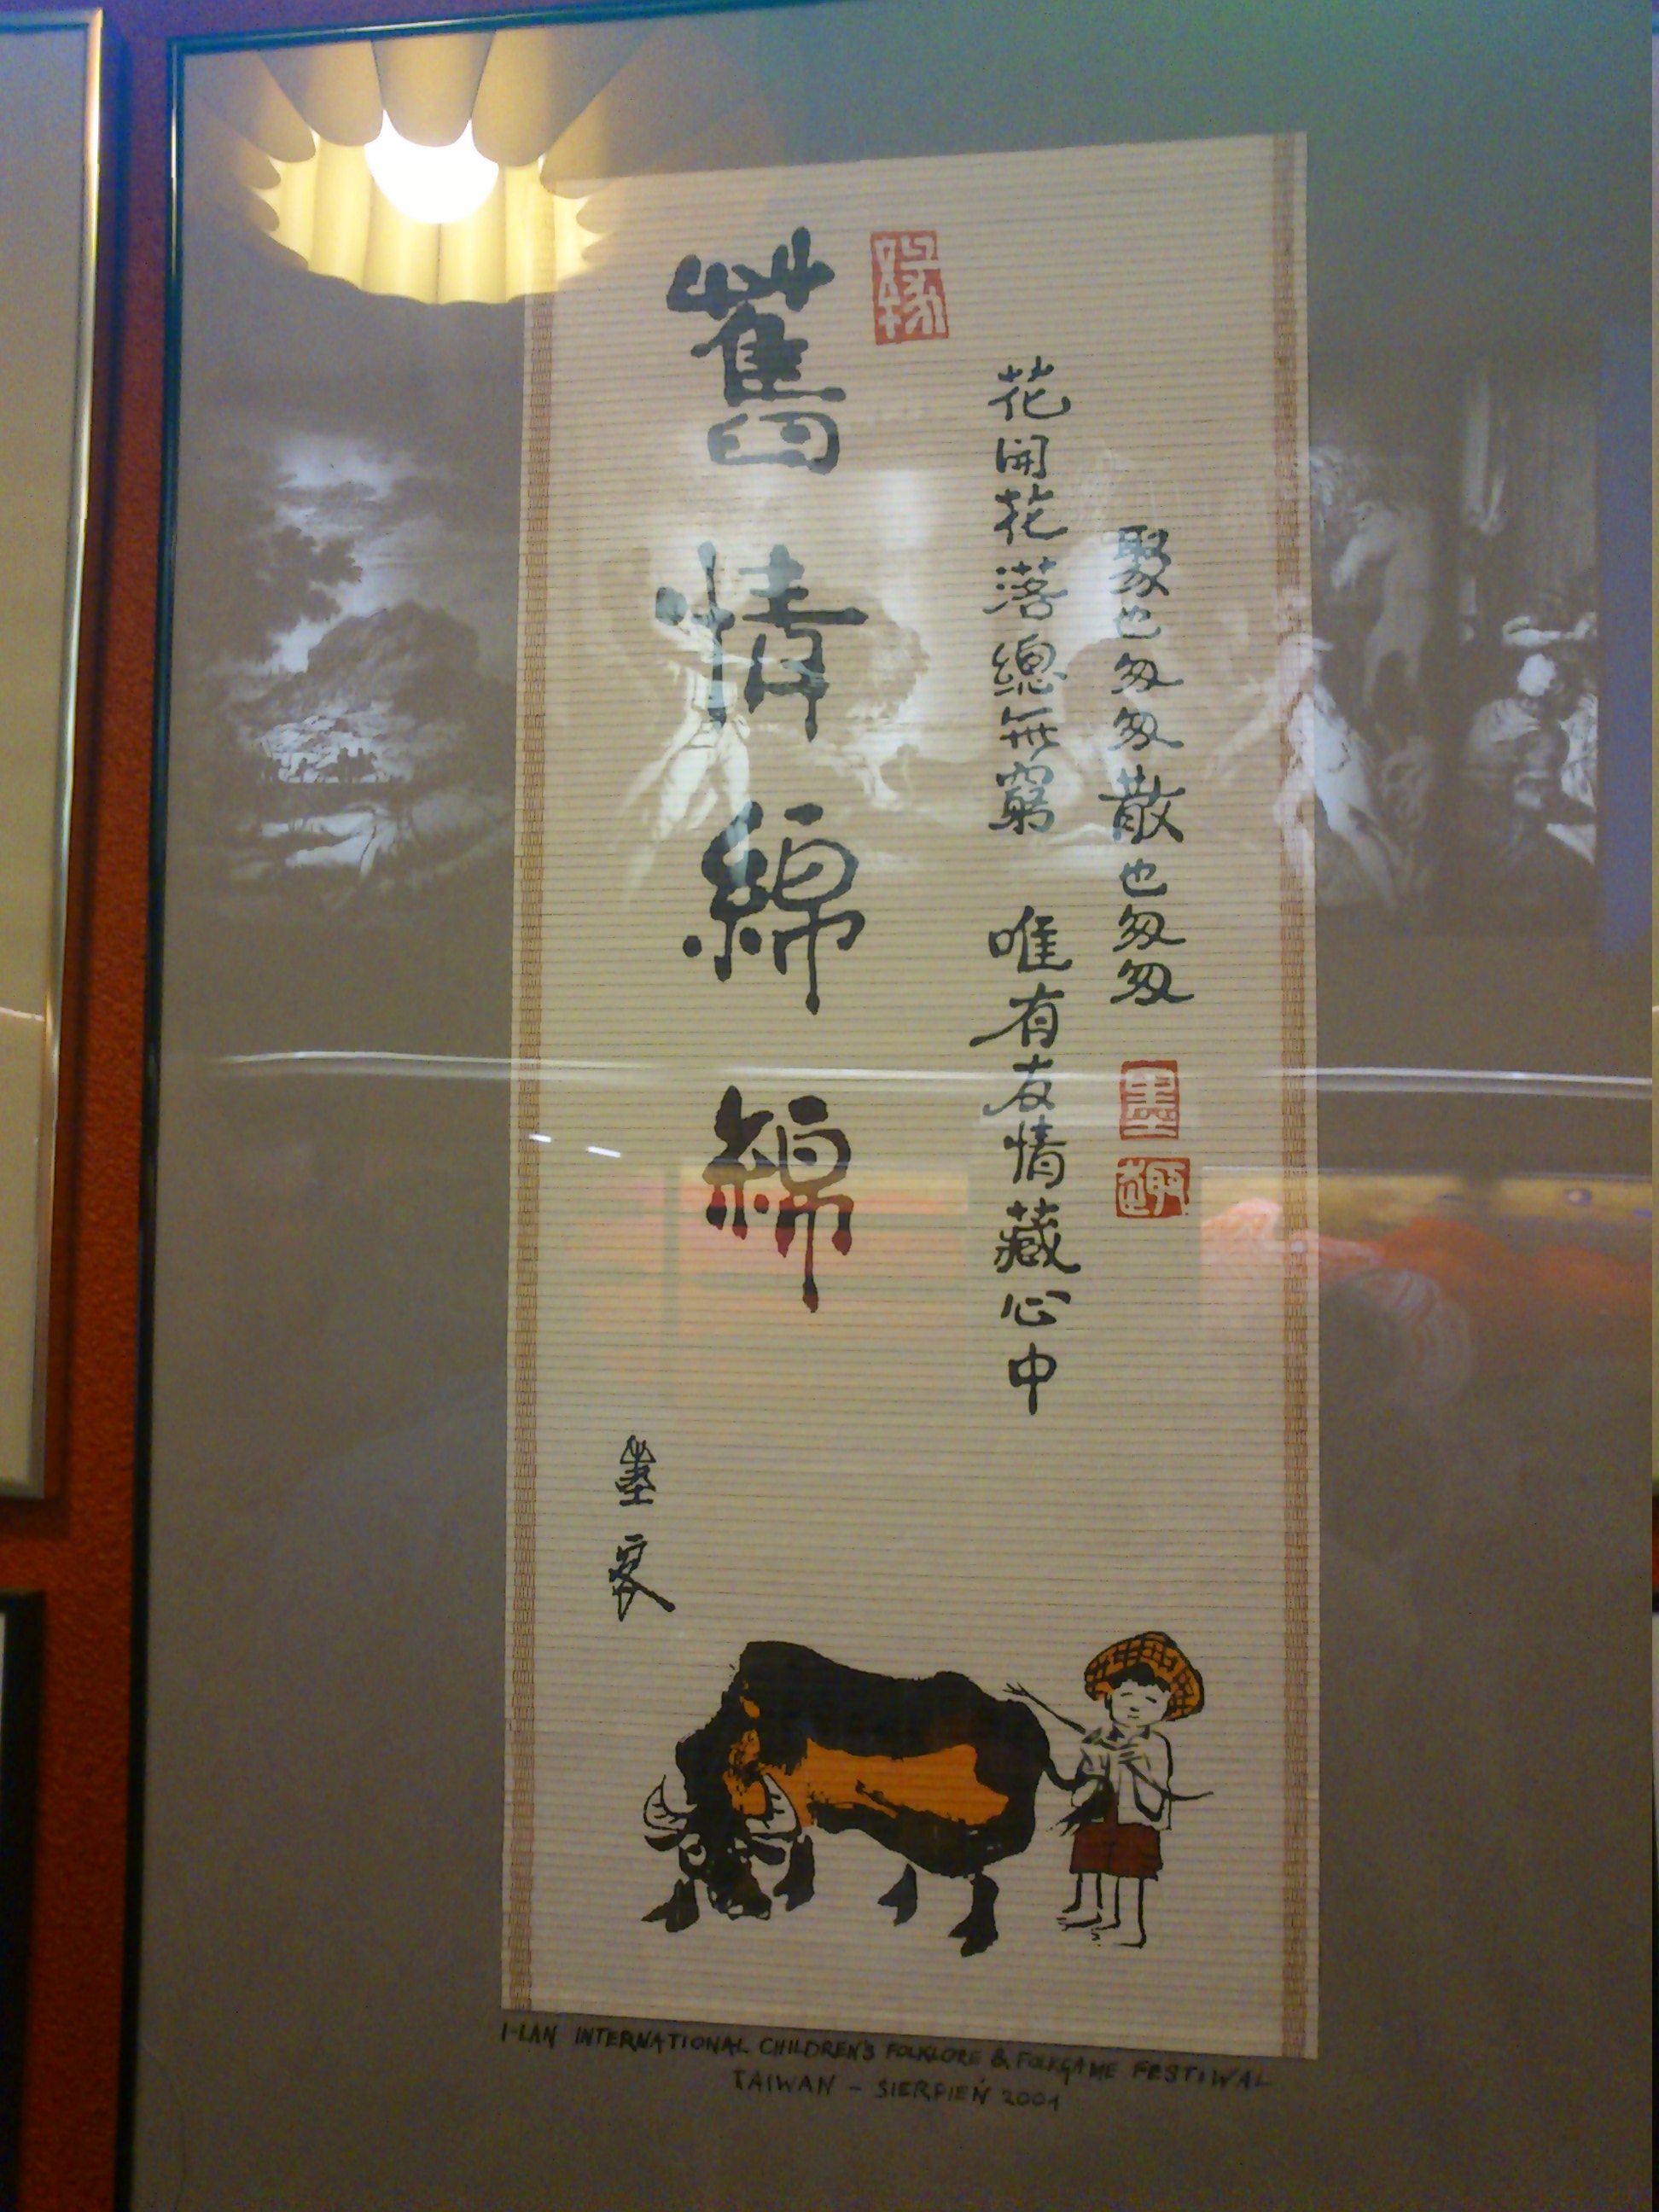 聚也匆匆散也匆匆
墨趣
花開花落總無窮 唯有友情藏心中
緣
舊情綿綿
墨客
I-LAN INTERNATIONAL CHILDREN'S FOLKLORE & FOLKGAME FESTIWAL
TAIWAN - SIERPIEŃ 2001